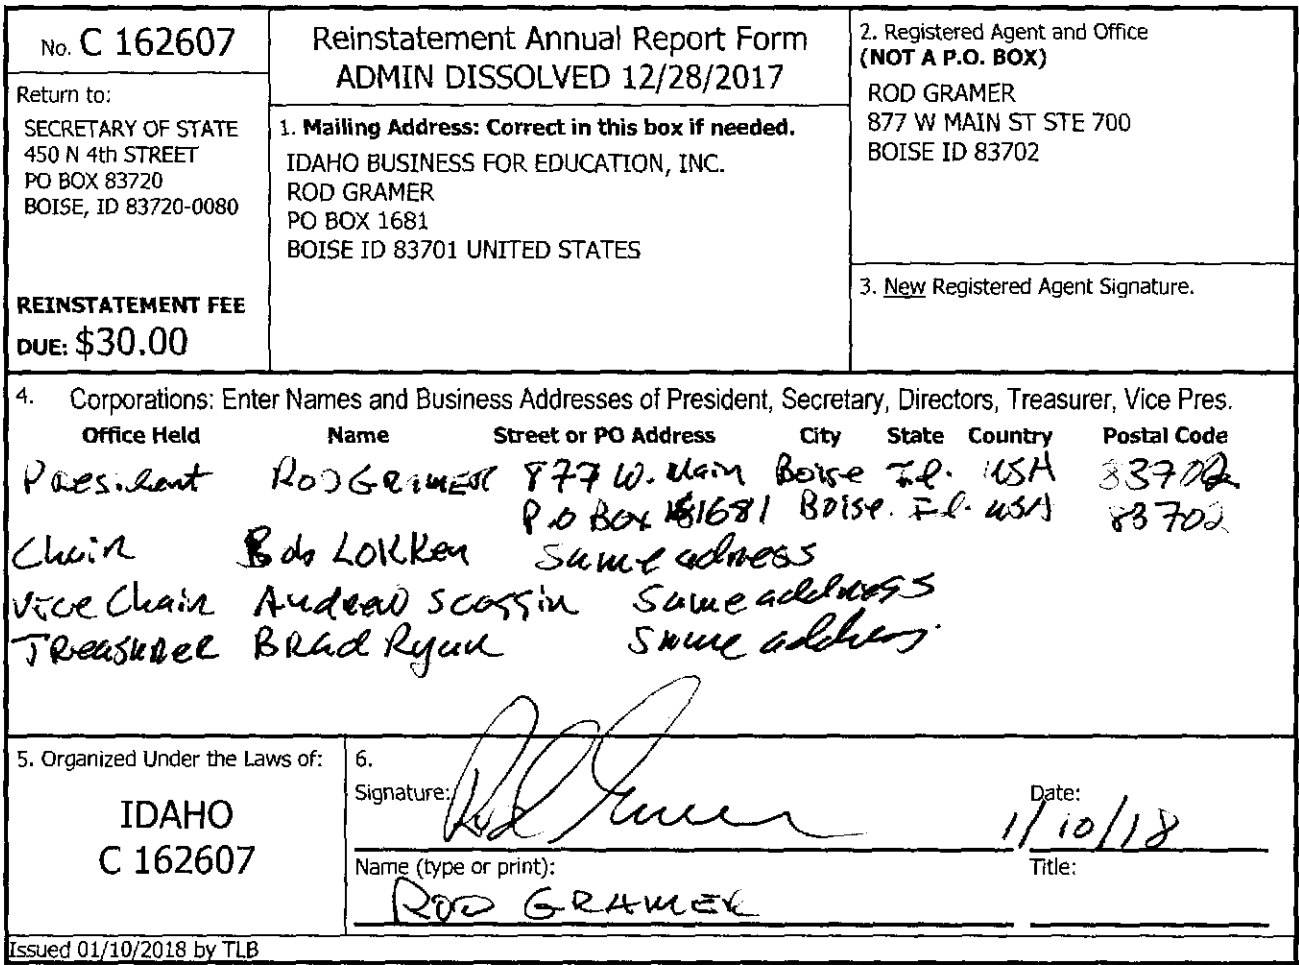 No. C 162607
Return to:
SECRETARY OF STATE
450 N 4th STREET
PO BOX 83720
BOISE, ID 83720-0080
REINSTATEMENT FEE
DUE: $30.00
Reinstatement Annual Report Form
ADMIN DISSOLVED 12/28/2017
1. Mailing Address: Correct in this box if needed.
IDAHO BUSINESS FOR EDUCATION, INC.
ROD GRAMER
PO BOX 1681
BOISE ID 83701 UNITED STATES
2. Registered Agent and Office
(NOT A P.O. BOX)
ROD GRAMER
877 W MAIN ST STE 700
BOISE ID 83702
3. New Registered Agent Signature.
4. Corporations: Enter Names and Business Addresses of President, Secretary, Directors, Treasurer, Vice Pres.
Office Held Name Street or PO Address City State Country Postal Code
President ROD GRAMER 877 W. Main Boise Id. USA 83702
P.O Box 1681 Boise. Id. USA 83702
Chair Bob LOKKen Same adress
Vice Chair Andrew Scoggin Same address
TReasuRer BRad Ryan Same address.
5. Organized Under the Laws of:
IDAHO
C 162607
6.
Signature: Rod Gramer
Date:
1/10/18
Name (type or print):
ROD GRAMER
Title:
Issued 01/10/2018 by TLB